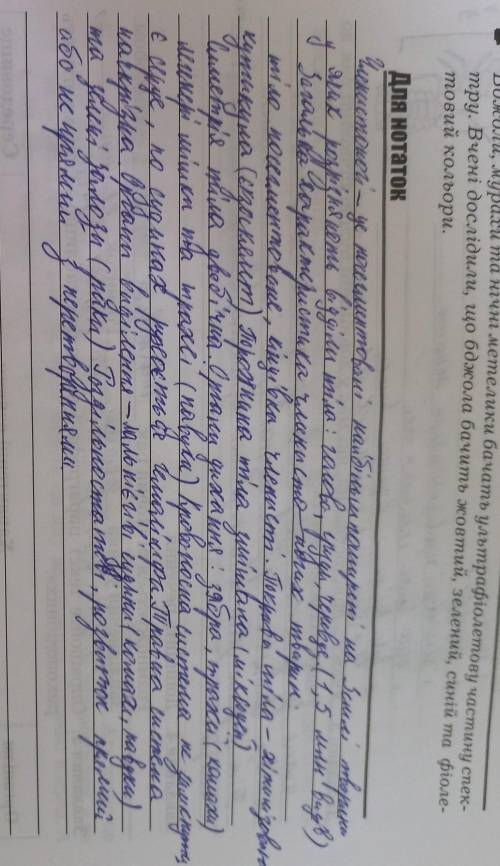 бджоли, мурахи та нічні метелики бачать ультрафіолетову частину спек-
тру. Вчені дослідили, що бджола бачить жовтий, зелений, синій та фіоле-
товий кольори.
Для нотаток
Членистоногі – це посегментовані найбільш поширені на Землі тварини
у яких розрізняють відділи тіла: голова, груди, черевце (1,5 млн видів)
Загальна характеристика членистоногих тварин.
тіло посегментоване, кінцівки членисті. Покрив тіла – хітинізована
кутикула (екзоскелет) Порожнина тіла змішана (міксоцель)
Симетрія тіла двобічна. Органи дихання: зябра, трахеї (комахи)
легеневі мішки та трахеї (павуки) Кровоносна система не замкнута,
є серце, по судинах рухається гемолімфа. Травна система
наскрізна, органи виділення – мальпігієві судини (комахи, павуки)
та зелені залози (раки) Роздільностатеві, розвиток прямий
або непрямий з перетворенням